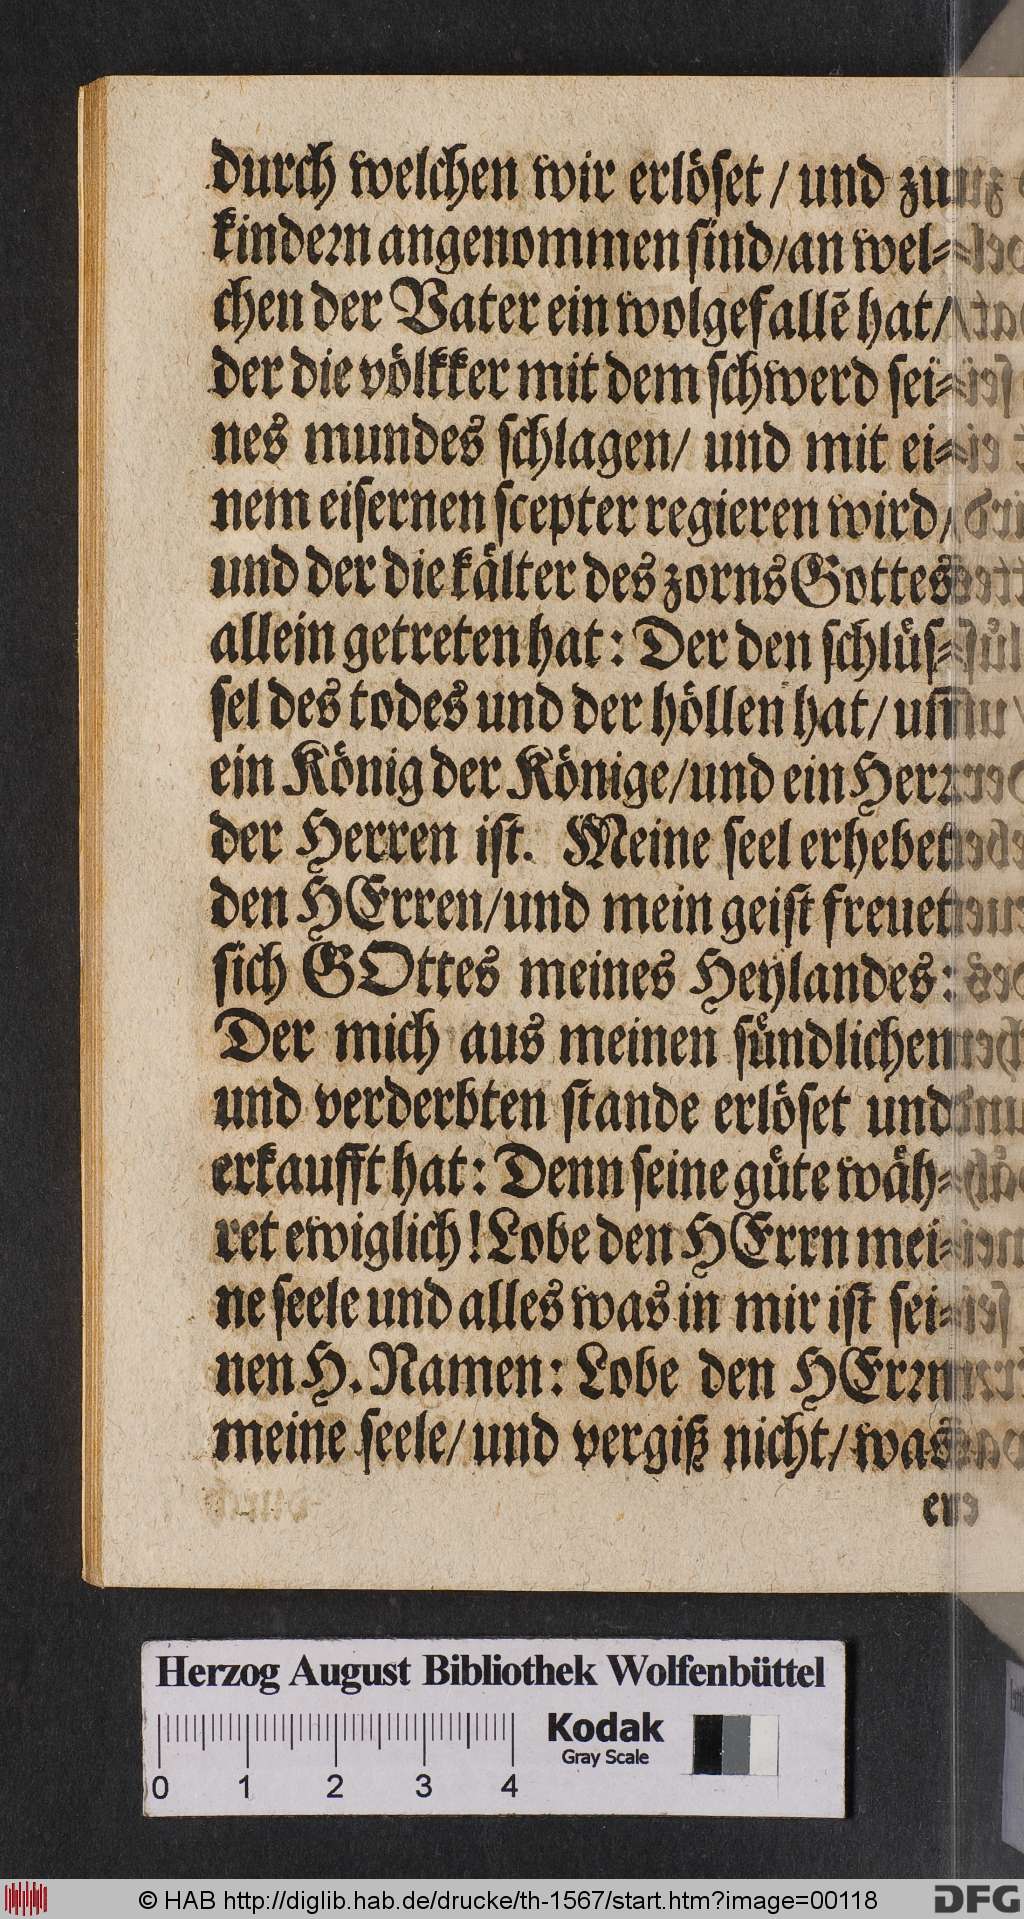 durch welchen wir erlöset / und zu
kindern angenommen sind/an wel-
chen der Vater ein wolgefallē hat/
der die völkker mit dem schwerd sei-
nes mundes schlagen/ und mit ei-
nem eisernen scepter regieren wird/
und der die kälter des zorns Gottes
allein getreten hat: Der den schlüs-
sel des todes und der höllen hat/ un̄
ein König der Könige/und ein Herr
der Herren ist. Meine seel erhebet
den HErren/und mein geist freuet
sich GOttes meines Heylandes:
Der mich aus meinen sündlichen
und verderbten stande erlöset und
erkaufft hat: Denn seine güte wäh-
ret ewiglich! Lobe den HErrn mei-
ne seele und alles was in mir ist sei-
nen H. Namen: Lobe den HErrn
meine seele/ und vergiß nicht/ was
er
Herzog August Bibliothek Wolfenbüttel
Kodak
Gray Scale
0 1 2 3 4
© HAB http://diglib.hab.de/drucke/th-1567/start.htm?image=00118
DFG